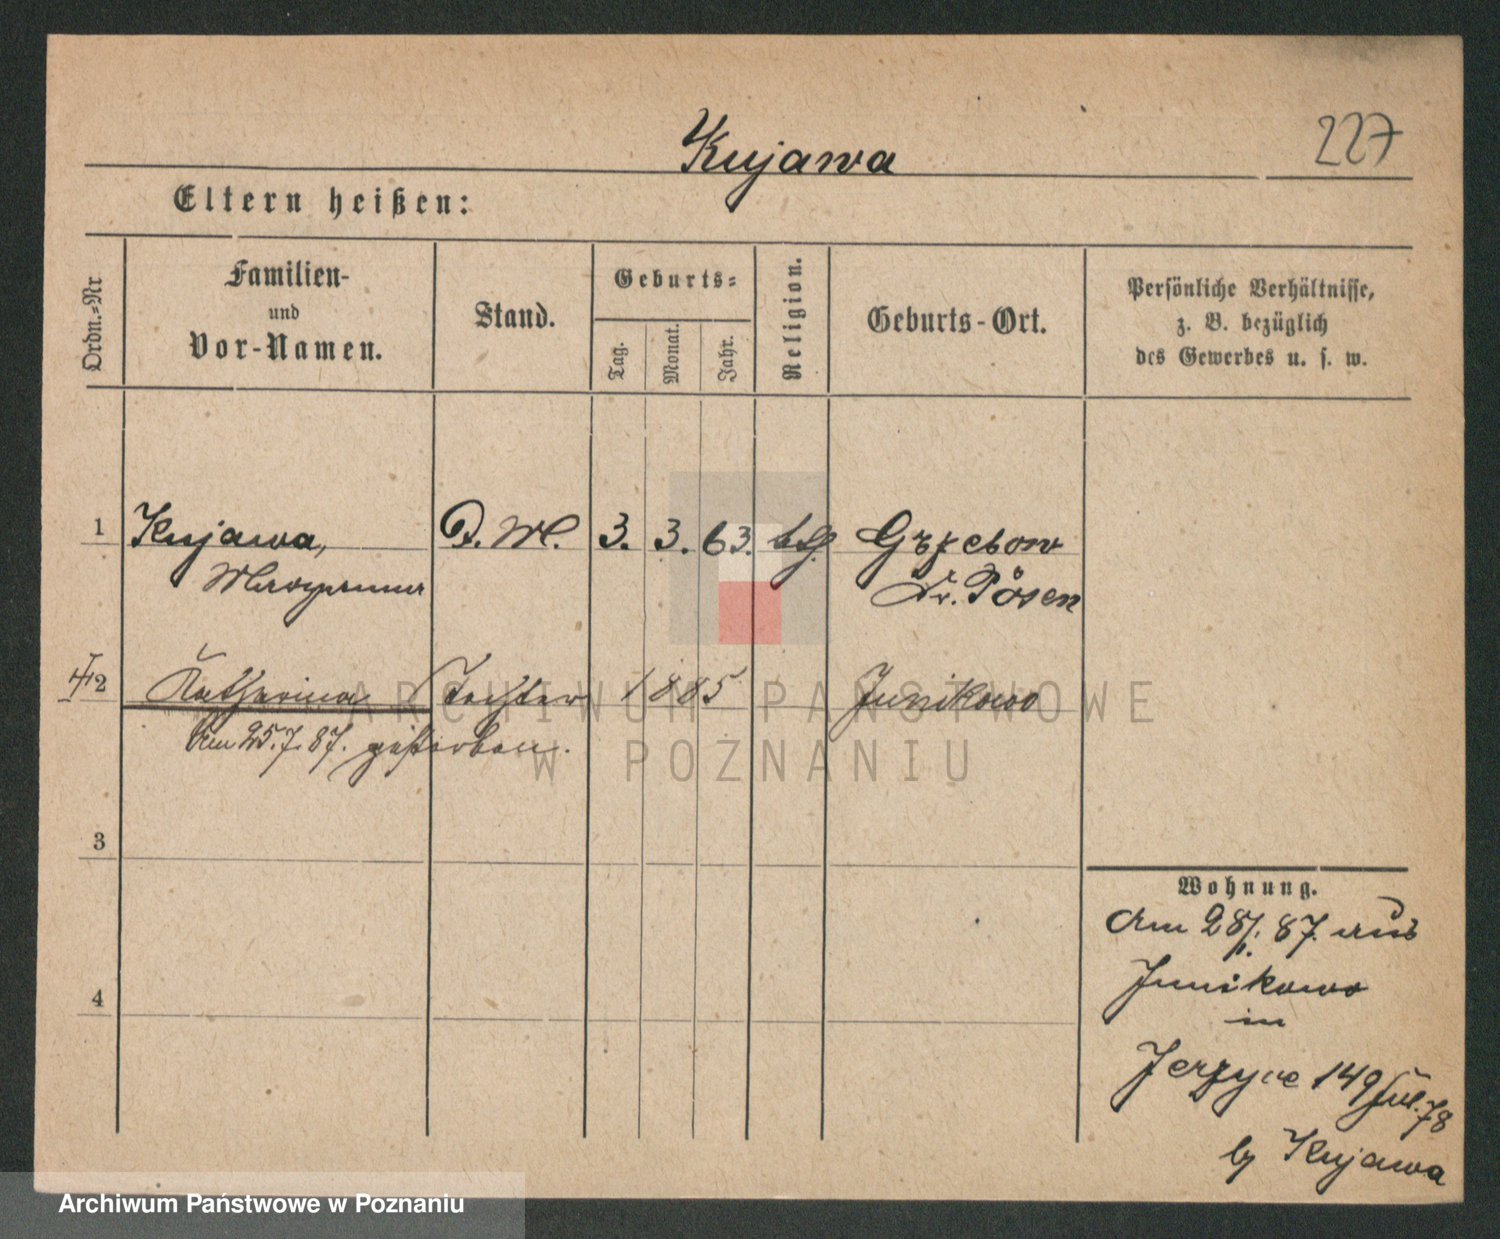 Kujawa
227
Eltern heißen:
Ordn.-Nr
Familien-
und
Vor-Namen.
Stand.
Geburts-
Tag.
Monat.
Jahr.
Religion.
Geburts-Ort.
Persönliche Verhältnisse,
z. B. bezüglich
des Gewerbes u. s. w.
1 Kujawa, D. M. 3. 3. 63.
Kr. Posen
2 Katharina Tochter 1885 Junikowo
Am 25.7.87. gestorben.
ARCHIWUM PAŃSTWOWE
W POZNANIU
3
Wohnung.
Am 28/. 87. aus
Junikowo
4
in
Jerzyce 149
by Kujawa
Archiwum Państwowe w Poznaniu